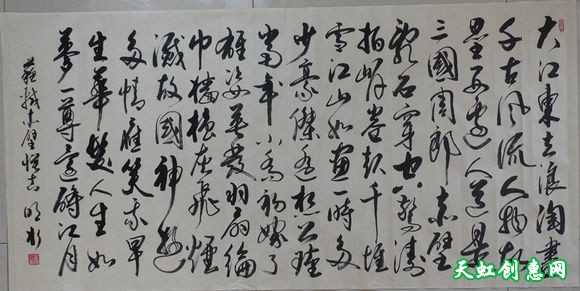 大江東去浪淘盡
千古風流人物故
壘西邊人道是
三國周郎赤壁
亂石穿空驚濤
拍岸卷起千堆
雪江山如畫一時多
少豪傑遙想公瑾
當年小喬初嫁了
雄姿英發羽扇綸
巾檣櫓灰飛煙
滅故國神遊
多情應笑我早
生華髮人生如
夢一尊還酹江月
蘇軾赤壁懷古
天虹创惠网